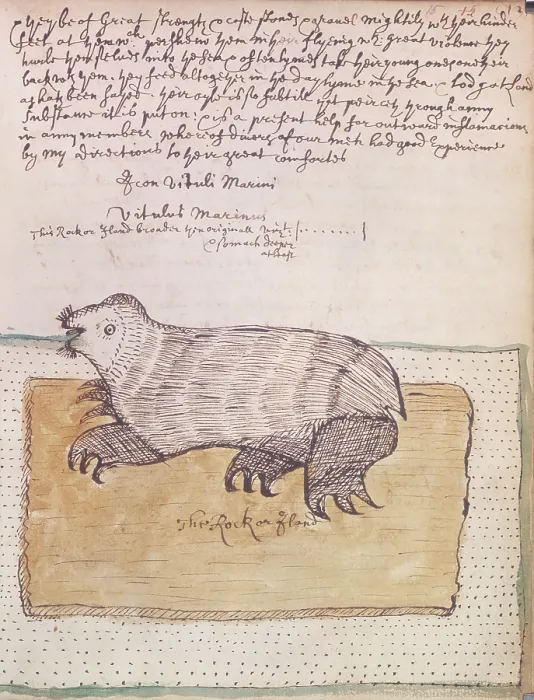 they be of Great strength & caste stones & gravel mightily wth their hinder
feet at them wch pershew them in their flying wth great violence they
hurle themselves into the sea & oftentymes take their young ones one their
back wth them. they feed altogether in the day tyme in the sea &
as hath been sayed. their oyle is so subtill yt peirceth through anny
substanne it is put on: & is a present help for outward inflamacions
in anny members whereof divers of our men had good Experience
by my directions to their great comfortes
Icon Vituli Marini
Vitulus Marinus
This Rock or Iland broader then originall
& somach deeper
at least
The Rock or Iland